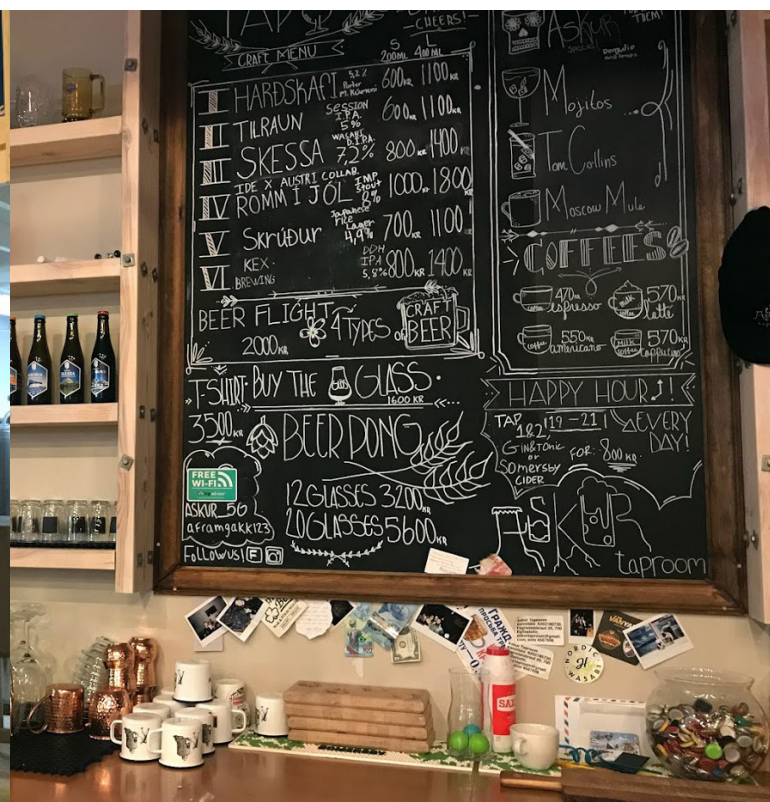 CHEERS!
CRAFT MENU
S L
200ML 400ML
I HARÐSKAFI 5,2% Porter 600KR 1100KR
II TILRAUN SESSION I.P.A. 5% 600KR 1100KR
III SKESSA WASABI D.IPA. 7,2% 800KR 1400KR
IDE X AUSTRI COLLAB.
IV ROMM Í JÓL IMP. Stout 8% 1000KR 1800KR
V Skrúður Japanese rice Lager 4,9% 700KR 1100KR
VI KEX BREWING DDH IPA 5,8% 800KR 1400KR
BEER FLIGHT 4 TYPES OF CRAFT BEER
2000KR
T-SHIRT
3500KR
BUY THE GLASS
1600 KR
BEER PONG
12 GLASSES 3200KR
20 GLASSES 5600KR
FREE
WI-FI
ASKUR_5G
aframgakk123
FOLLOW US!
ASKUR
Mojitos
Tom Collins
Moscow Mule
COFFEES
470KR espresso
570KR latte
550KR americano
570KR cappucino
HAPPY HOUR!
TAP 1&2 19-21 EVERY DAY!
GIN&TONIC
or
SOMERSBY
CIDER
FOR: 800KR
ASKUR
taproom
NORDIC WASABI